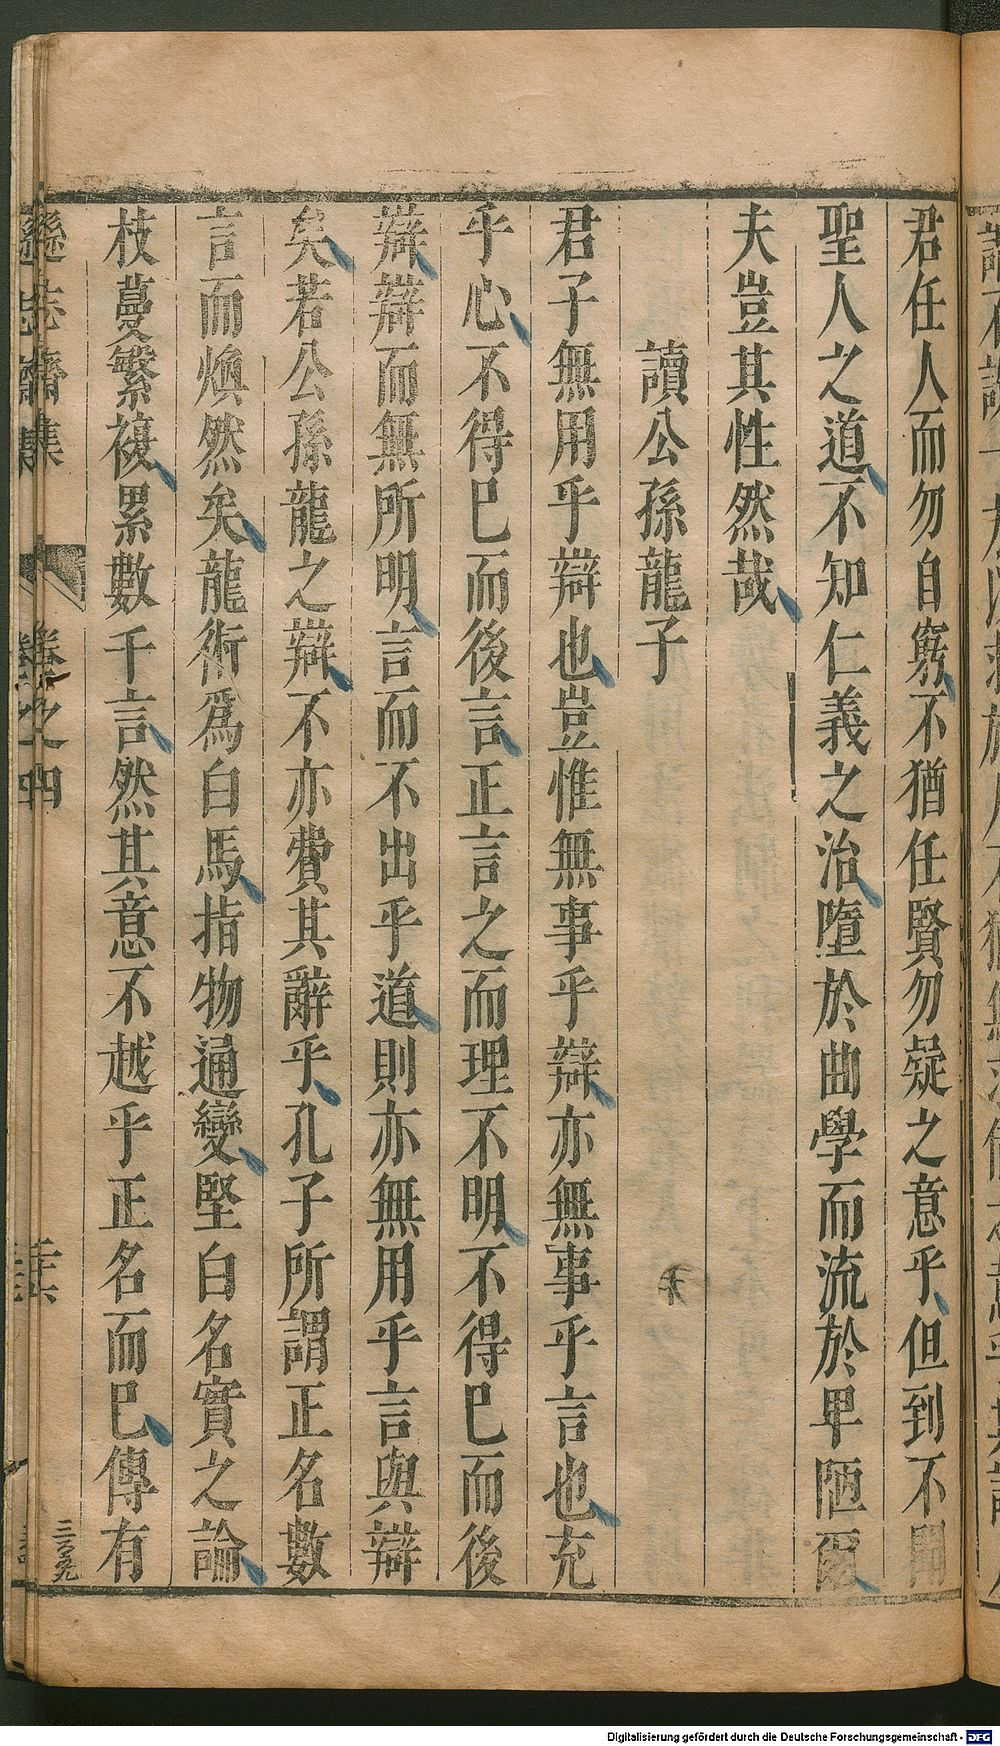 君任人而勿自窮不猶任賢勿疑之意乎但到不聞
聖人之道不知仁義之治墮於曲學而流於卑陋爾
夫豈其性然哉
讀公孫龍子
君子無用乎辯也豈惟無事乎辯亦無事乎言也充
乎心不得已而後言正言之而理不明不得已而後
辯辯而無所明言而不出乎道則亦無用乎言與辯
矣若公孫龍之辯不亦費其辭乎孔子所謂正名數
言而煥然矣龍術為白馬指物通變堅白名實之論
枝蔓繁複累數千言然其意不越乎正名而已傳有
遜志齋集
卷之四
Digitalisierung gefördert durch die Deutsche Forschungsgemeinschaft - DFG